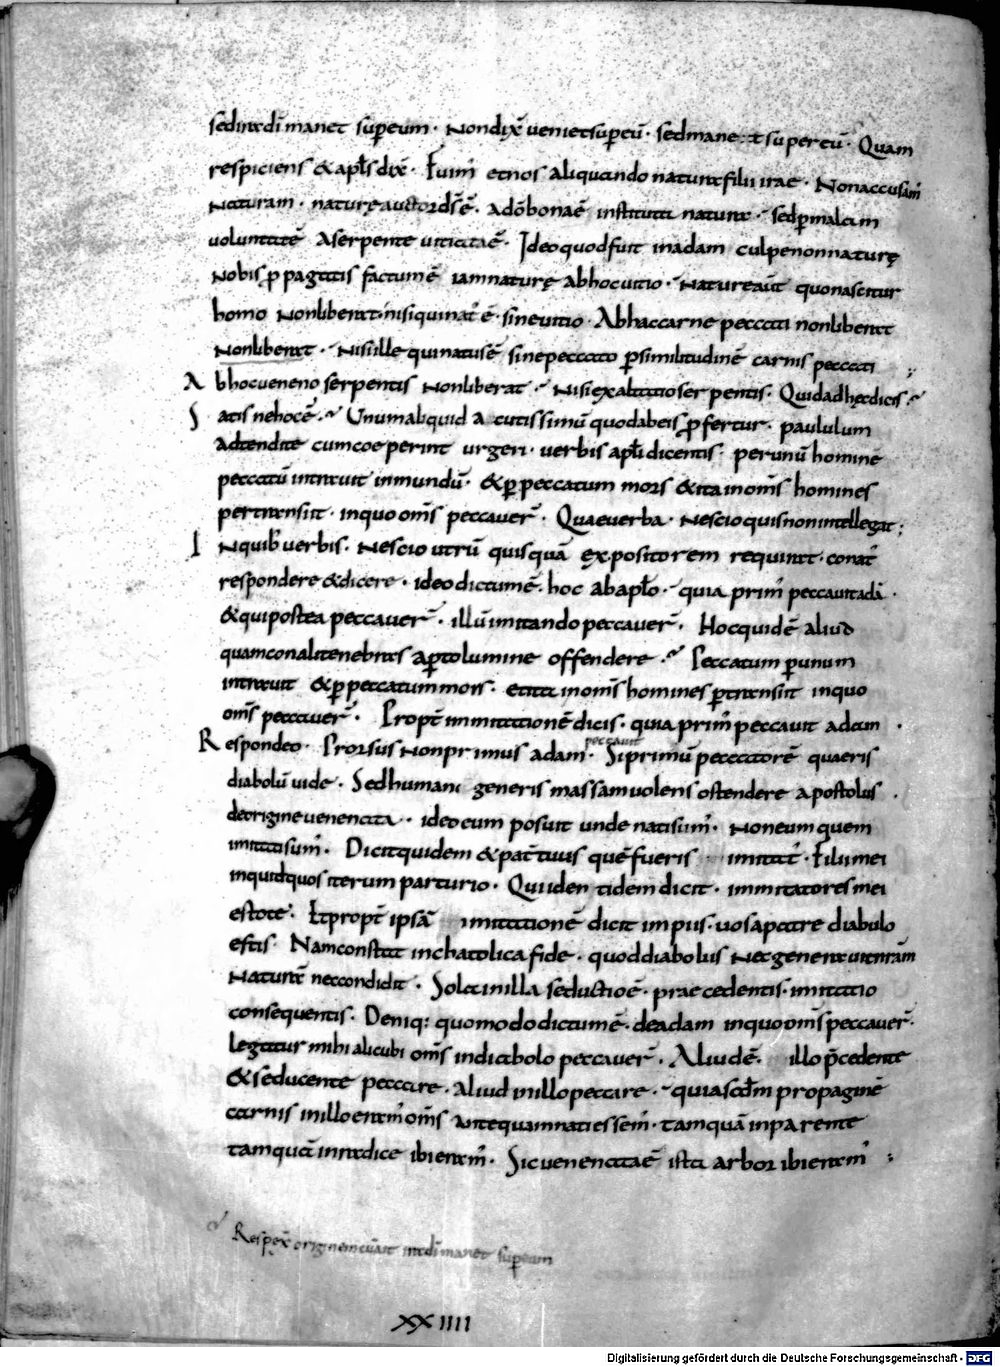 sedira dī manet sup eum · Non dix̄ veniet sup eū · sed mane:t super eū · Quam
respiciens & apłs dix̄ · Fuim' et nos aliquando natura filii irae · Non accusam'
Naturam · naturę auctor dš ē · a dō bona ē instituta natura · sed p malam
voluntatē a serpente vitiata ē · Ideo quod fuit in adam culpe non naturę
Nobis p pagatis factum ē iam naturę ab hoc vitio · Natureaūt quo nascitur
homo Non liberat nisi qui nat' ē · sine vitio · Ab hac carne peccati non liberat
Non liberat · Nisi ille qui natus ē sine peccato p similitudinē carnis peccati
Ab hoc veneno serpentis Non liberat · Nisi exaltatio serpentis · Quid ad hęc dicis
Satis ne hoc ē · Unum aliquid acutissimū quod ab eis p fertur · paululum
adtendite cum coeperint urgeri · verbis apłi dicentis · per unū hominē
peccatū intravit in mundū · & p peccatum mors & ita in om̄s homines
pertransiit · in quo om̄s peccaver̄ · Quae verba · Nescio quis non intellegat ;
In quib' verbis · Nescio utrū quisquā expositorem requirat · conat'
respondere & dicere · ideo dictum ē · hoc ab apło · quia prim' peccavit adā ·
& qui postea peccaver̄ · illū imitando peccaver̄ · Hoc quid ē aliud
quam conali tenebras aperto lumine offendere · Peccatum p unum
intravit & p peccatum mors · et ita in om̄s homines ptransiit in quo
om̄s peccaver̄ · Propt' immitationē dicis · quia prim' peccavit adam ·
Respondeo · Prorsus Non primus adam peccavit · Si primū peccatorē quaeris
diabolū vide · Sed humani generis massam volens ostendere apostolus ·
de origine venenata · ideo eum posuit unde nati sum' · Non eum quem
imitati sum' · Dicit quidem & pat' tuus quē fueris imitat' · Filii mei
inquid quos iterum parturio · Qui identidem dicit · immitatores mei
estote · Et propt' ipsā imitationē dicit impiis · vos a patre diabulo
estis · Nam constat in chatolica fide · quod diabolus Nec genera vit nrām
Naturā nec condidit · Sola in illa seductio ē · praecedentis · imitatio
consequentis · Deniq: quomodo dictum ē · de adam in quo om̄s peccaver̄ ·
legatur mihi alicubi om̄s in diabolo peccaver̄ · Aliud ē · illo p̄cedente
& seducente peccare · aliud in illo peccare · quia scdm propaginē
carnis in illo eram' om̄s antequam nati essem' · tamquā in parente
tamquā in radice ibi eram' · Sic venenata ē ista arbor ibi eram' ;
Respex̄ originem cū ait ira dī manet sup eum
XXIIII
Digitalisierung gefördert durch die Deutsche Forschungsgemeinschaft - DFG